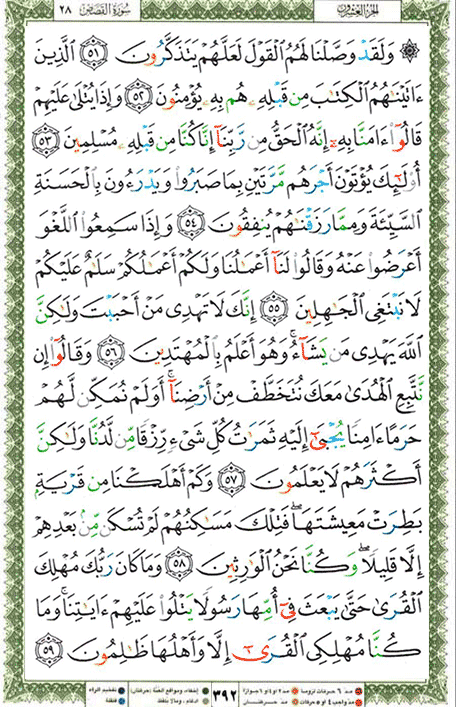 الجزء العشرون
سورة القصص ٢٨
۞ وَلَقَدْ وَصَّلْنَا لَهُمُ ٱلْقَوْلَ لَعَلَّهُمْ يَتَذَكَّرُونَ ٥١ ٱلَّذِينَ
ءَاتَيْنَٰهُمُ ٱلْكِتَٰبَ مِن قَبْلِهِۦ هُم بِهِۦ يُؤْمِنُونَ ٥٢ وَإِذَا يُتْلَىٰ عَلَيْهِمْ
قَالُوٓا۟ ءَامَنَّا بِهِۦٓ إِنَّهُ ٱلْحَقُّ مِن رَّبِّنَآ إِنَّا كُنَّا مِن قَبْلِهِۦ مُسْلِمِينَ ٥٣
أُو۟لَٰٓئِكَ يُؤْتَوْنَ أَجْرَهُم مَّرَّتَيْنِ بِمَا صَبَرُوا۟ وَيَدْرَءُونَ بِٱلْحَسَنَةِ
ٱلسَّيِّئَةَ وَمِمَّا رَزَقْنَٰهُمْ يُنفِقُونَ ٥٤ وَإِذَا سَمِعُوا۟ ٱللَّغْوَ
أَعْرَضُوا۟ عَنْهُ وَقَالُوا۟ لَنَآ أَعْمَٰلُنَا وَلَكُمْ أَعْمَٰلُكُمْ سَلَٰمٌ عَلَيْكُمْ
لَا نَبْتَغِى ٱلْجَٰهِلِينَ ٥٥ إِنَّكَ لَا تَهْدِى مَنْ أَحْبَبْتَ وَلَٰكِنَّ
ٱللَّهَ يَهْدِى مَن يَشَآءُ ۚ وَهُوَ أَعْلَمُ بِٱلْمُهْتَدِينَ ٥٦ وَقَالُوٓا۟ إِن
نَّتَّبِعِ ٱلْهُدَىٰ مَعَكَ نُتَخَطَّفْ مِنْ أَرْضِنَآ ۚ أَوَلَمْ نُمَكِّن لَّهُمْ
حَرَمًا ءَامِنًا يُجْبَىٰٓ إِلَيْهِ ثَمَرَٰتُ كُلِّ شَىْءٍ رِّزْقًا مِّن لَّدُنَّا وَلَٰكِنَّ
أَكْثَرَهُمْ لَا يَعْلَمُونَ ٥٧ وَكَمْ أَهْلَكْنَا مِن قَرْيَةٍۭ
بَطِرَتْ مَعِيشَتَهَا ۖ فَتِلْكَ مَسَٰكِنُهُمْ لَمْ تُسْكَن مِّنۢ بَعْدِهِمْ
إِلَّا قَلِيلًا ۖ وَكُنَّا نَحْنُ ٱلْوَٰرِثِينَ ٥٨ وَمَا كَانَ رَبُّكَ مُهْلِكَ
ٱلْقُرَىٰ حَتَّىٰ يَبْعَثَ فِىٓ أُمِّهَا رَسُولًا يَتْلُوا۟ عَلَيْهِمْ ءَايَٰتِنَا ۚ وَمَا
كُنَّا مُهْلِكِى ٱلْقُرَىٰٓ إِلَّا وَأَهْلُهَا ظَٰلِمُونَ ٥٩
مدّ ٦ حركات لزوماً مدّ ٢ او ٤ او ٦ جوازاً ٣٩٢ إخفاء، ومواقع الغنّة (حركتان) تفخيم الراء
مدّ واجب ٤ او ٥ حركات مدّ حركتان إدغام، وما لا يُلفظ قلقلة